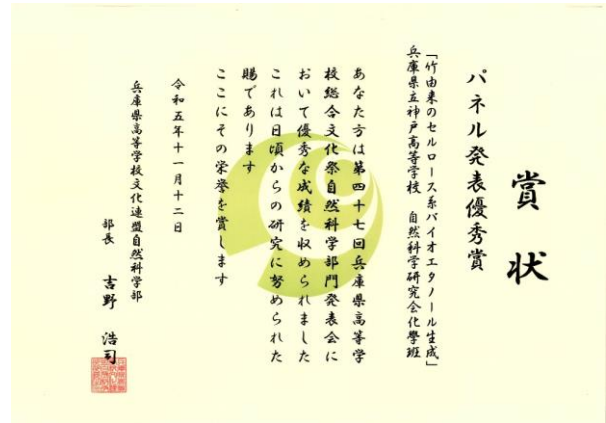 賞状
パネル発表優秀賞
「竹由来のセルロース系バイオエタノール生成」
兵庫県立神戸高等学校　自然科学研究会化學班
あなた方は第四十七回兵庫県高等学
校総合文化祭自然科学部門発表会に
おいて優秀な成績を収められました
これは日頃からの研究に努められた
賜であります
ここにその栄誉を賞します
令和五年十一月十二日
兵庫県高等学校文化連盟自然科学部
部長　吉野　浩司